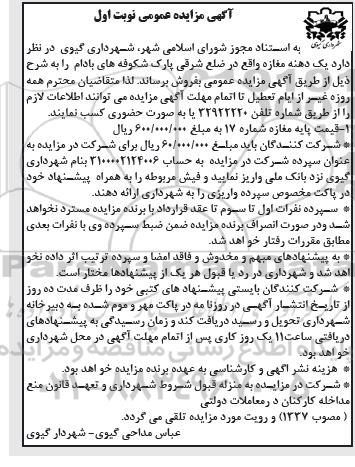 آگهی مزایده عمومی نوبت اول
شهرداری گیوی
به استناد مجوز شورای اسلامی شهر، شهرداری گیوی در نظر
دارد یک دهنه مغازه واقع در ضلع شرقی پارک شکوفه های بادام را به شرح
ذیل از طریق آگهی مزایده عمومی بفروش برساند. لذا متقاضیان محترم همه
روزه غیر از ایام تعطیل تا اتمام مهلت آگهی مزایده می توانند اطلاعات لازم
را از طریق شماره تلفن ۳۲۹۲۲۲۲۰ یا به صورت حضوری کسب نمایند.
۱-قیمت پایه مغازه شماره ۱۷ به مبلغ ۶۰۰/۰۰۰/۰۰۰ ریال
* شرکت کنندگان باید مبلغ ۶۰/۰۰۰/۰۰۰ ریال برای شرکت در مزایده به
عنوان سپرده شرکت در مزایده به حساب ۳۱۰۰۰۰۲۱۲۴۰۰۶ بنام شهرداری
گیوی نزد بانک ملی واریز نمایید و فیش مربوطه را به همراه پیشنهاد خود
در پاکت مخصوص سپرده واریزی را به شهرداری ارائه دهند.
* سپرده نفرات اول تا سوم تا عقد قرارداد با برنده مزایده مسترد نخواهد
شد ودر صورت انصراف برنده مزایده ضمن ضبط سپرده وی با نفرات بعدی
مطابق مقررات رفتار خو اهد شد.
* به پیشنهادهای مبهم و مخدوش و فاقد امضا و سپرده ترتیب اثر داده نخو
اهد شد و شهرداری در رد یا قبول هر یک از پیشنهادها مختار است.
* شرکت کنندگان بایستی پیشنهاد های کتبی خود را ظرف مدت ده روز
از تاریخ انتشار آگهی در روزنا مه در پاکت مهر و موم شده به دبیرخانه
شهرداری تحویل و رسید دریافت کند و زمان رسیدگی به پیشنهادهای
دریافتی ساعت۱۱ یک روز کاری پس از اتمام مهلت آگهی در محل شهرداری
خو اهد بود.
* هزینه نشر آگهی و کارشناسی به عهده برنده مزایده خو اهد بود.
* شرکت در مزایده به منزله قبول شروط شهرداری و تعهد قانون منع
مداخله کارکنان د رمعاملات دولتی
( مصوب ۱۳۳۷) و رویت مورد مزایده تلقی می گردد.
عباس مداحی گیوی- شهردار گیوی